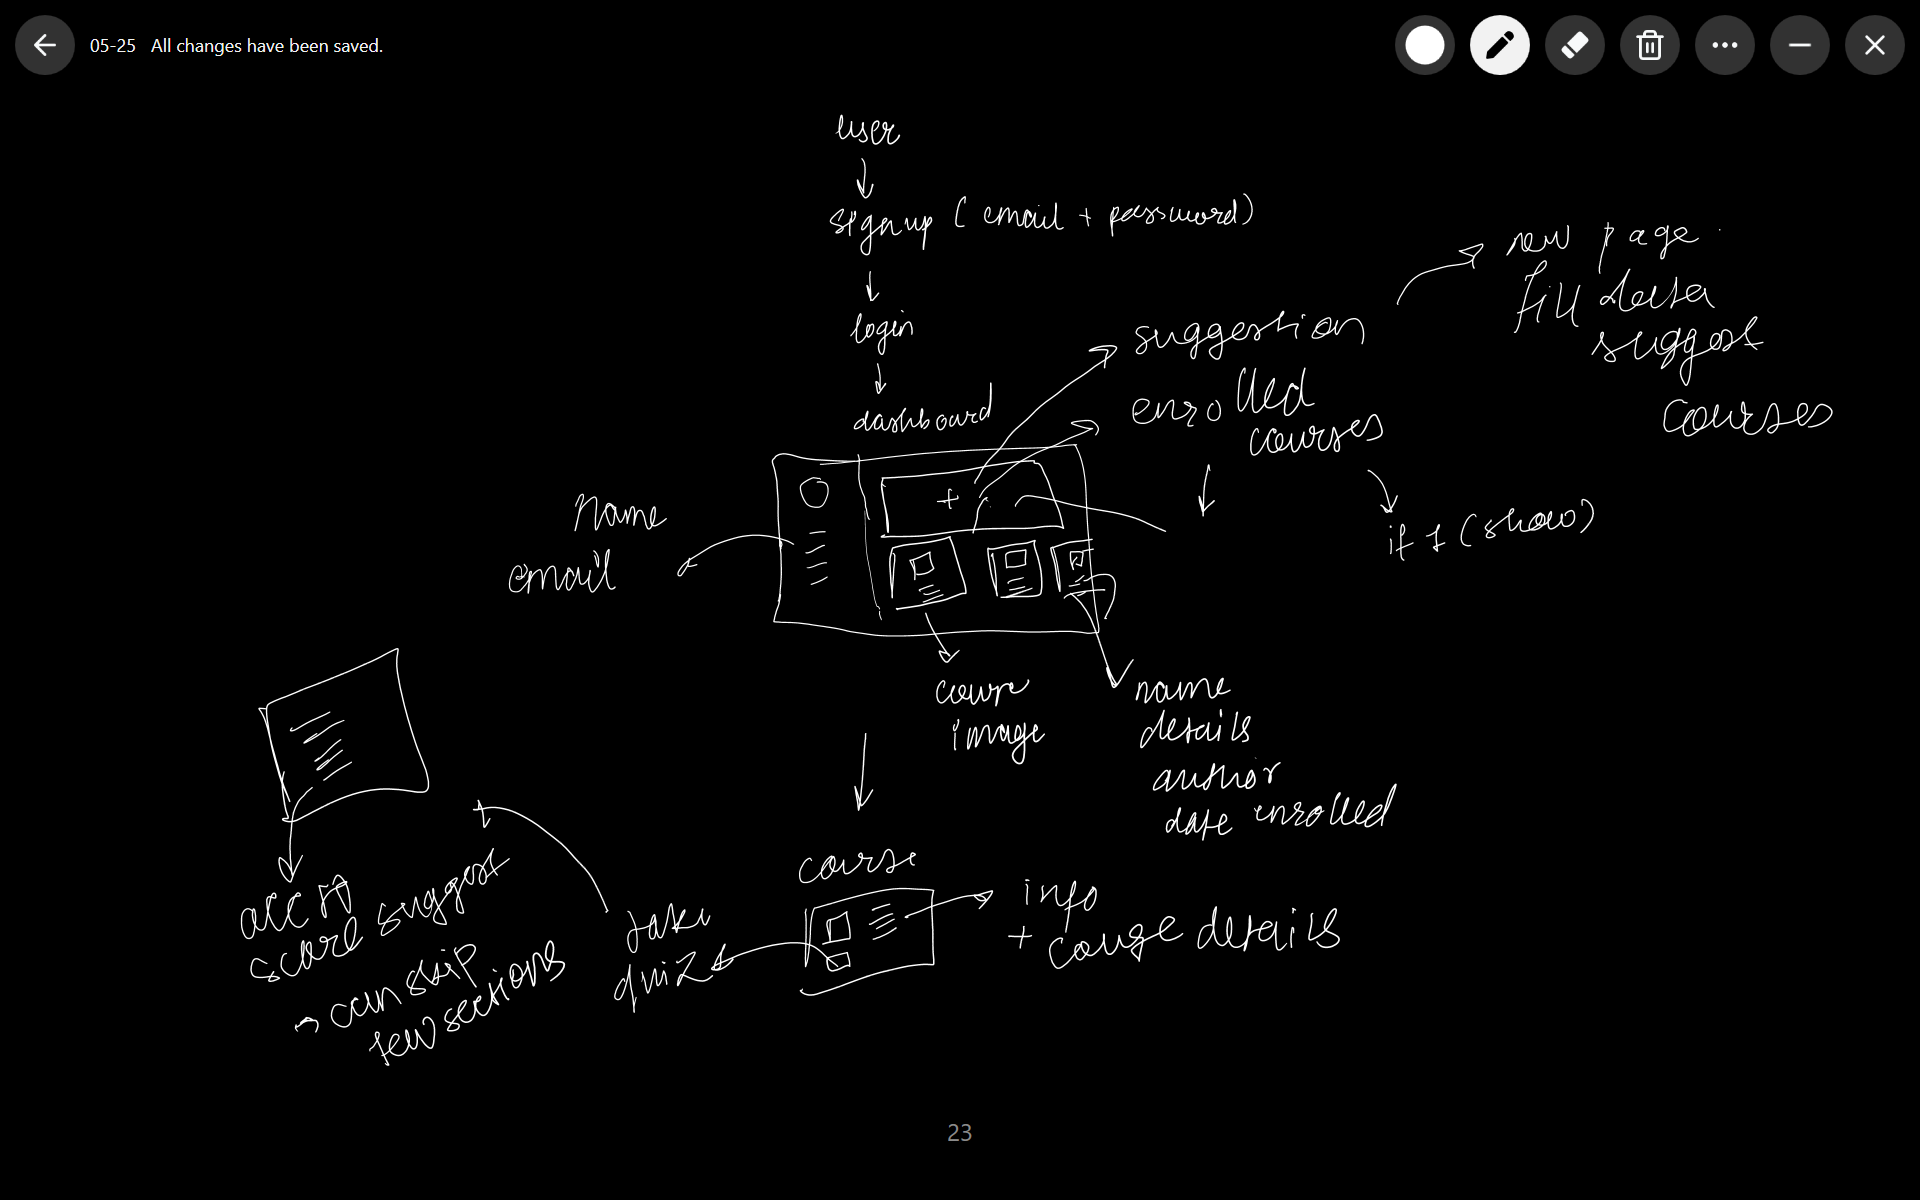 05-25 All changes have been saved.
user
signup ( email + password)
login
dashboard
suggestion
enrolled
courses
new page
fill data
suggest
courses
if 1 (show)
Name
email
+
image
name
details
author
date enrolled
course
info
+ course details
take
quiz
suggest
can skip
few sections
23